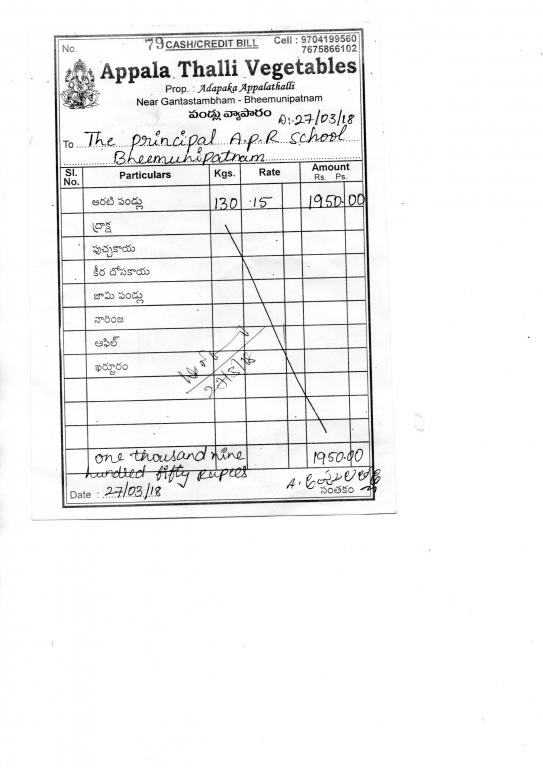 No. 79 CASH/CREDIT BILL Cell : 9704199560
7675866102
Appala Thalli Vegetables
Prop. : Adapaka Appalathalli
Near Gantastambham - Bheemunipatnam
పండ్లు వ్యాపారం D:27/03/18
To The principal A.P.R School
Bheemunipatnam
Sl. No. Particulars Kgs. Rate Amount Rs. Ps.
అరటి పండ్లు 130 15 1950.00
ద్రాక్ష
పుచ్చకాయ
కీర దోసకాయ
జామి పండ్లు
నారింజ
ఆఫిల్
ఖర్జూరం
27/3/18
one thousand nine 1950.00
hundred fifty rupees
Date : 27/03/18 సంతకం